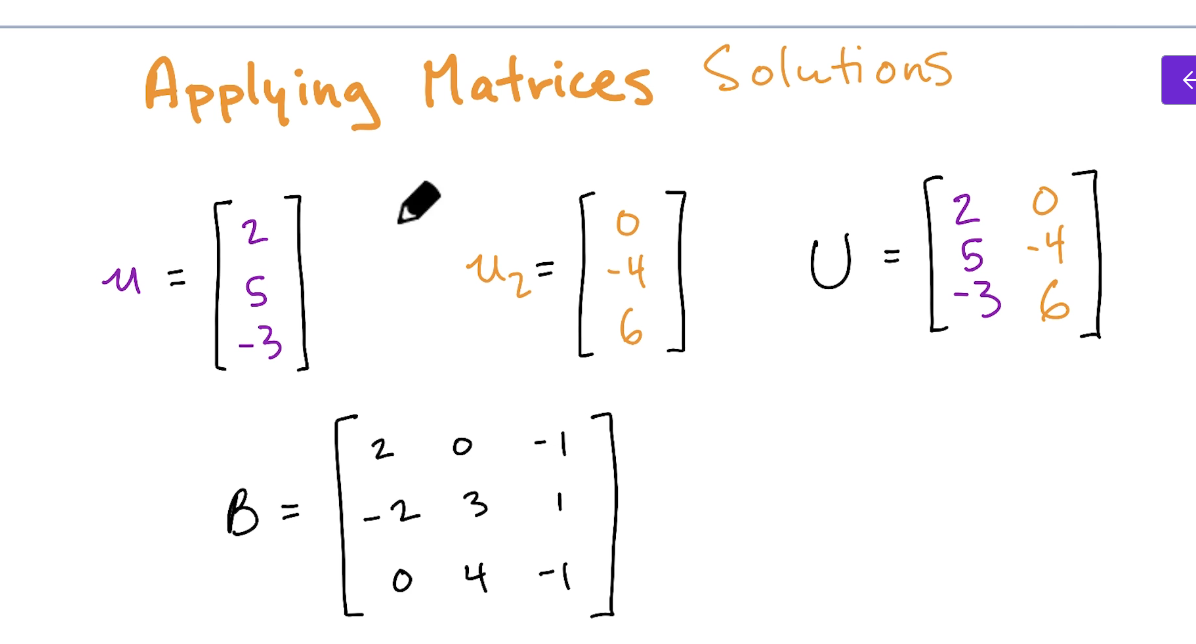 Applying Matrices Solutions
u = [2 5 -3] u2 = [0 -4 6] U = [2 0 5 -4 -3 6]
B = [2 0 -1
-2 3 1
0 4 -1]